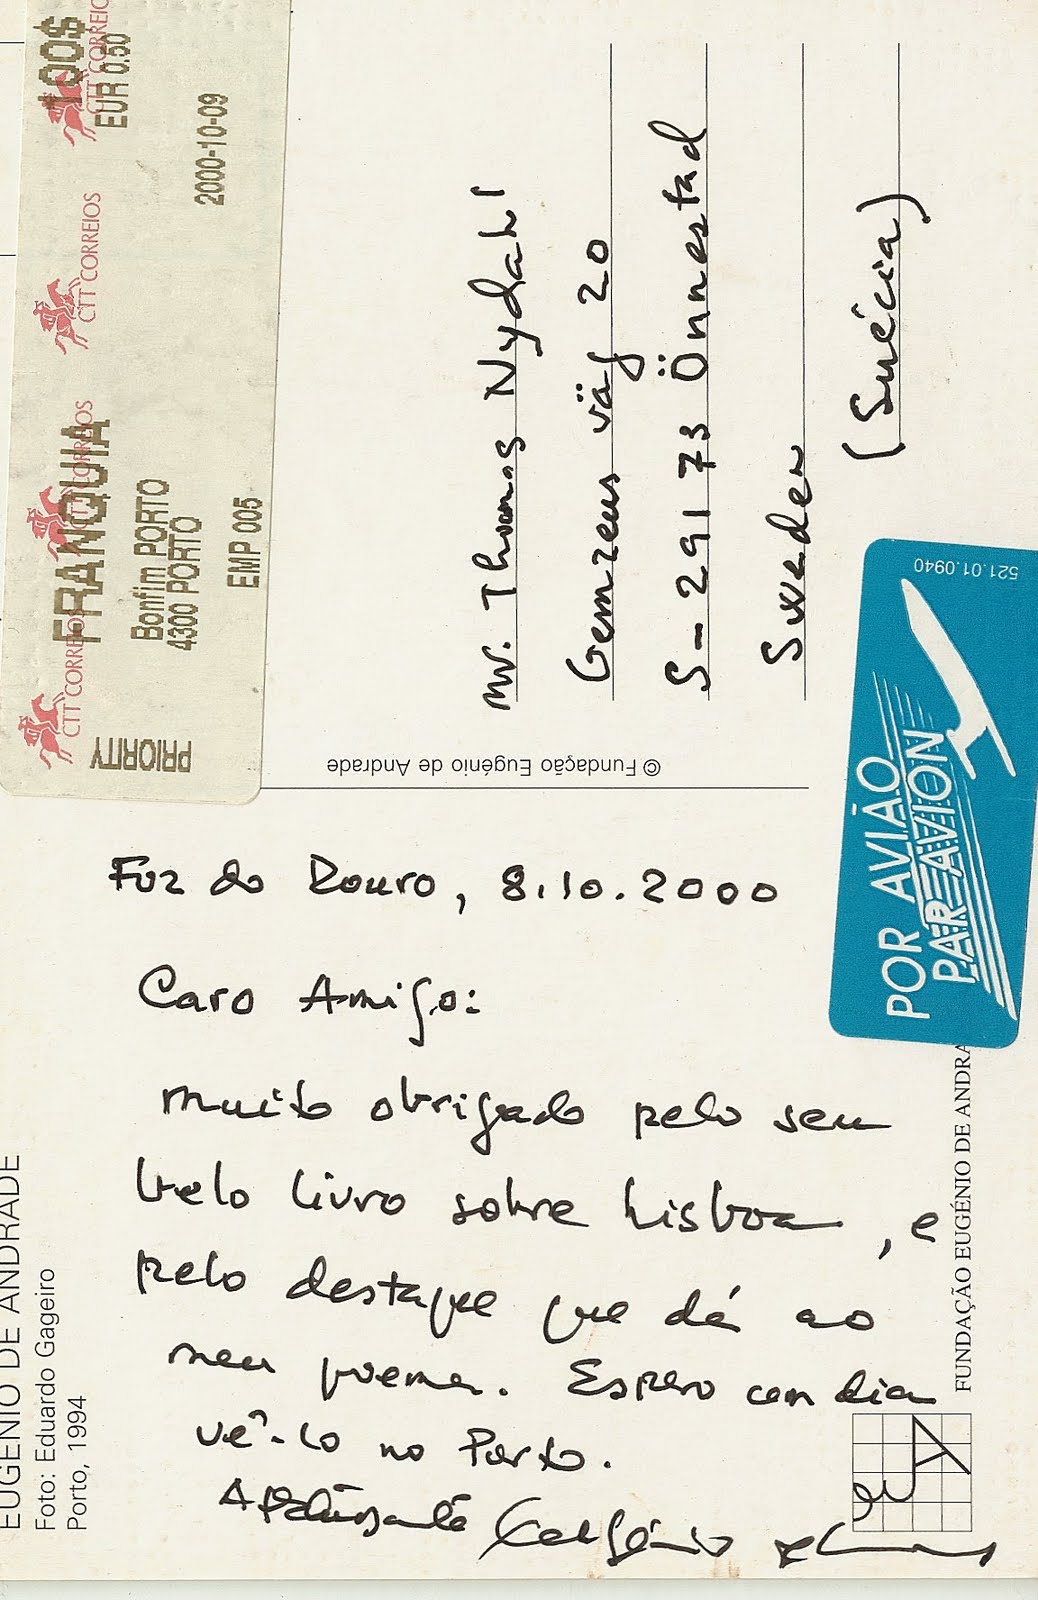 100$
EUR 0.50
2000-10-09
CTT CORREIOS
CTT CORREIOS
CTT CORREIOS
CTT CORREIOS
FRANQUIA
Bonfim PORTO
4300 PORTO
EMP 005
PRIORITY
Mr. Thomas Nydahl
Gemzeus väg 20
S-29173 Önnestad
Sweden
(Suécia)
© Fundação Eugénio de Andrade
521.01.0940
POR AVIÃO
PAR AVION
Foz do Douro, 8.10.2000
Caro Amigo:
muito obrigado pelo seu
belo livro sobre Lisboa, e
pelo destaque que dá ao
meu poema. Espero um dia
vê-lo no Porto.
Eugénio
EUGÉNIO DE ANDRADE
Foto: Eduardo Gageiro
Porto, 1994
FUNDAÇÃO EUGÉNIO DE ANDRA